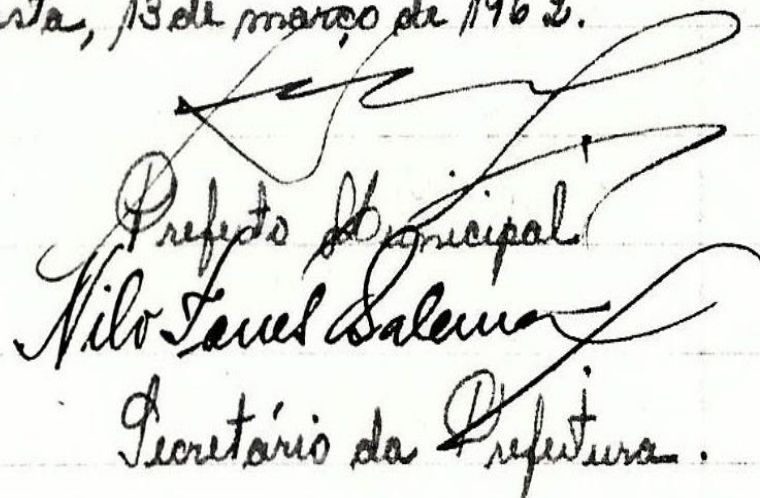 sta, 13 de março de 1962.
Prefeito Municipal
Nilo
Secretário da Prefeitura.